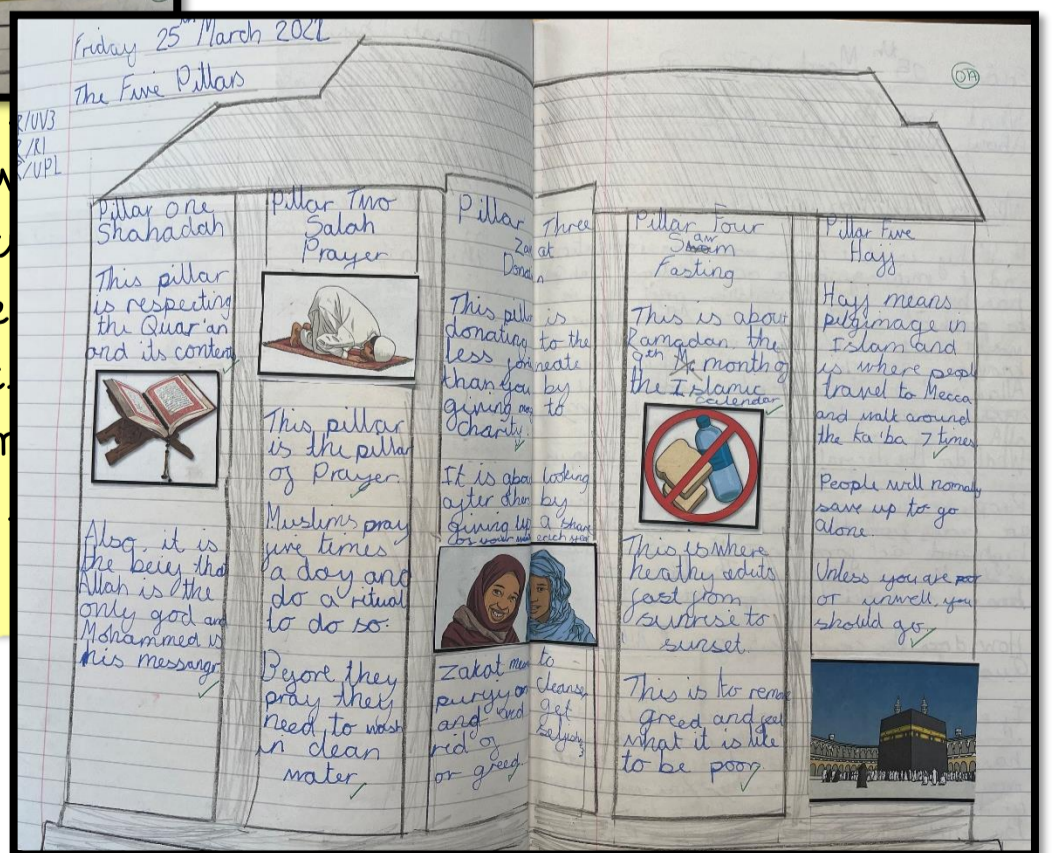 Friday 25th March 2022
The Five Pillars
R/UV3
/R1
/UP1
Pillar one
Shahadah
This pillar
is respecting
the Quar'an
and its content
Also, it is
the beiej that
Allah is the
only god and
Mohammed is
his messangr
Pillar Two
Salah
Prayer
This pillar
is the pillar
of Prayer
Muslims pray
five times
a day and
do a ritual
to do so.
Before they
pray they
need to wash
in clean
water
Pillar Three
Zakat
This pillar is
donating to the
less
than you by
giving to
charity
It is about looking
after other by
giving up a share
each year
Zakat means to
cleanse
and get
rid of
or greed
Pillar Four
Sawm
Fasting
This is about
Ramadan the
9th month of
the Islamic
calendar
This is where
heathy adults
fast from
sunrise to
sunset.
This is to remove
greed and feel
what it is like
to be poor
DA
Pillar Five
Hajj
Hajj means
pilgrimage in
Islam and
is where people
travel to Mecca
and walk around
the ka'ba 7 times
People will normaly
save up to go
alone.
Unless you are poor
or unwell, you
should go